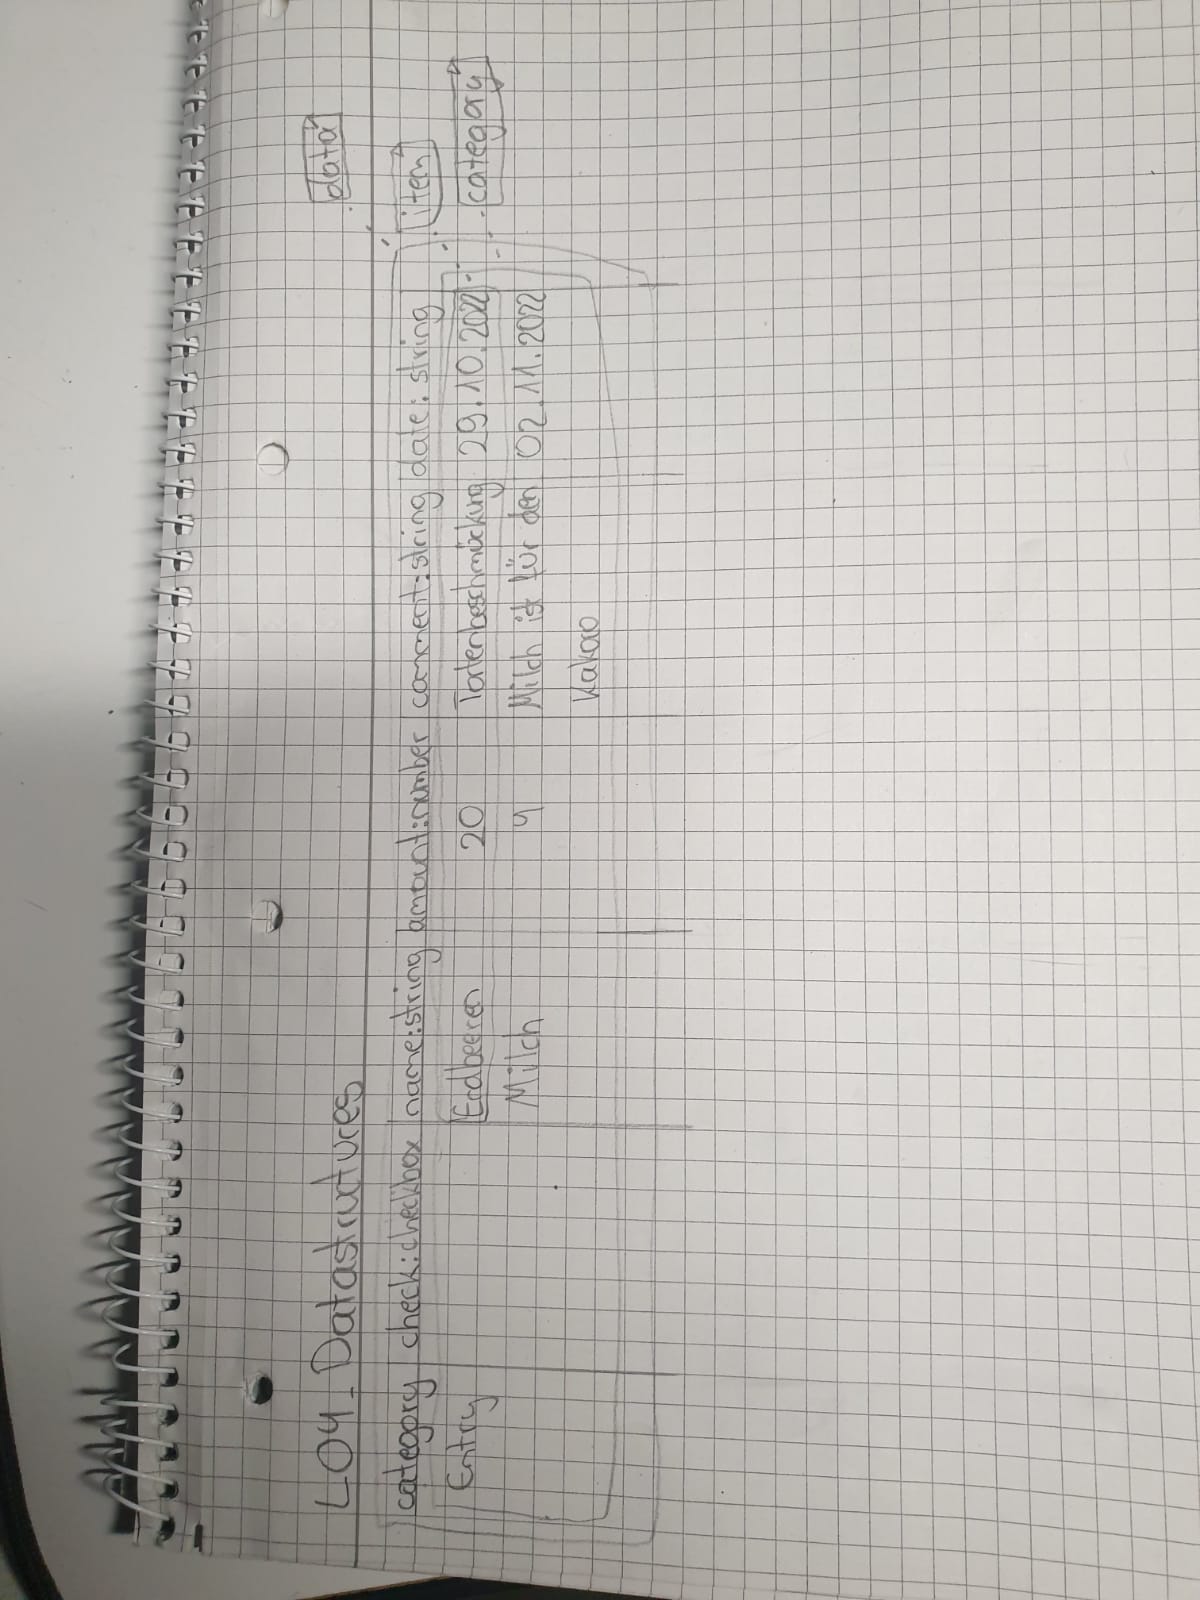 L04_Datastructures
data
category check:checkbox name:string amount:number comment:string date:string
item
Entry Erdbeeren 20 Tortenbeschmückung 29.10.2022
category
Milch 4 Milch ist für den 02.11.2022
Kakao